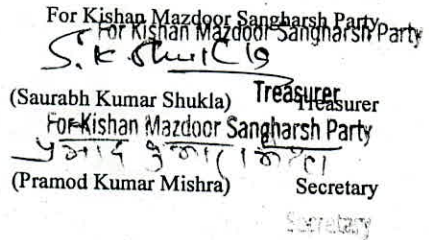 For Kishan Mazdoor Sangharsh Party
For Kishan Mazdoor Sangharsh Party
S. K Shukla
(Saurabh Kumar Shukla) Treasurer
Treasurer
For Kishan Mazdoor Sangharsh Party
प्रमोद कुमार मिश्रा
(Pramod Kumar Mishra) Secretary
Secretary